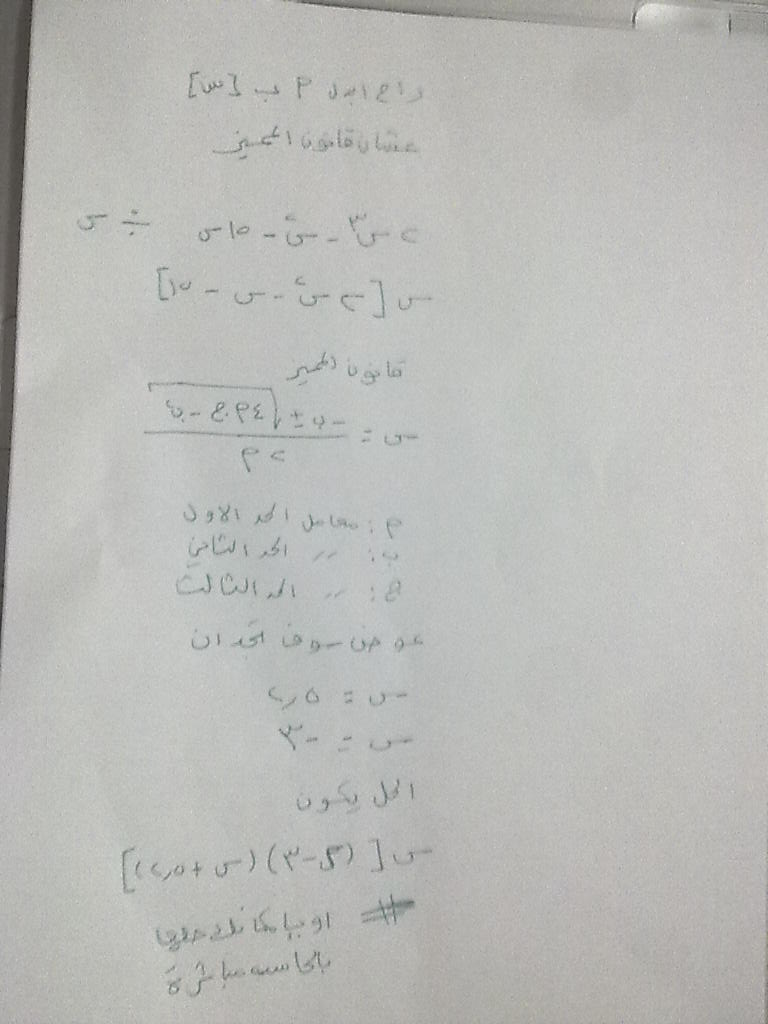 راح ابدل م ب [س]
عشان قانون المميز
٢س٣ - س٢ - ١٥س ÷ س
س [٢س٢ - س - ١٥]
قانون المميز
س = -ب ± √٤م.ج - ب٢
٢م
م : معامل الحد الاول
ب : ,, الحد الثاني
ج : ,, الحد الثالث
عوض سوف تجد ان
س = ٢,٥
س = -٣
الحل يكون
س [(س-٣)(س+٢,٥)]
او بإمكانك حلها
بالحاسبه مباشرة